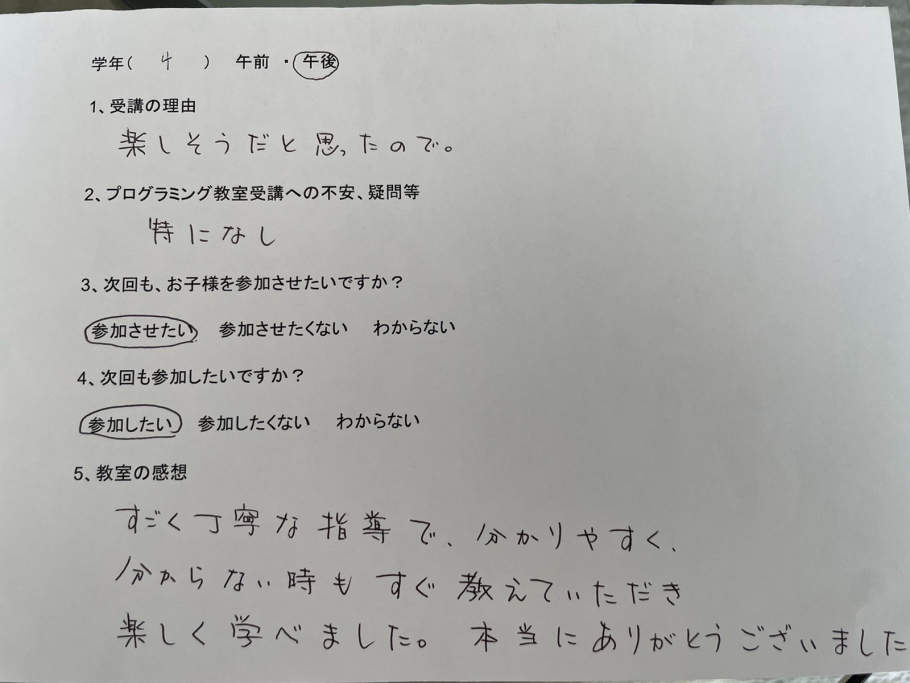 学年( 4 ) 午前 ・ 午後
1、受講の理由
楽しそうだと思ったので。
2、プログラミング教室受講への不安、疑問等
特になし
3、次回も、お子様を参加させたいですか？
参加させたい 参加させたくない わからない
4、次回も参加したいですか？
参加したい 参加したくない わからない
5、教室の感想
すごく丁寧な指導で、分かりやすく、
分からない時もすぐ教えていただき
楽しく学べました。本当にありがとうございました